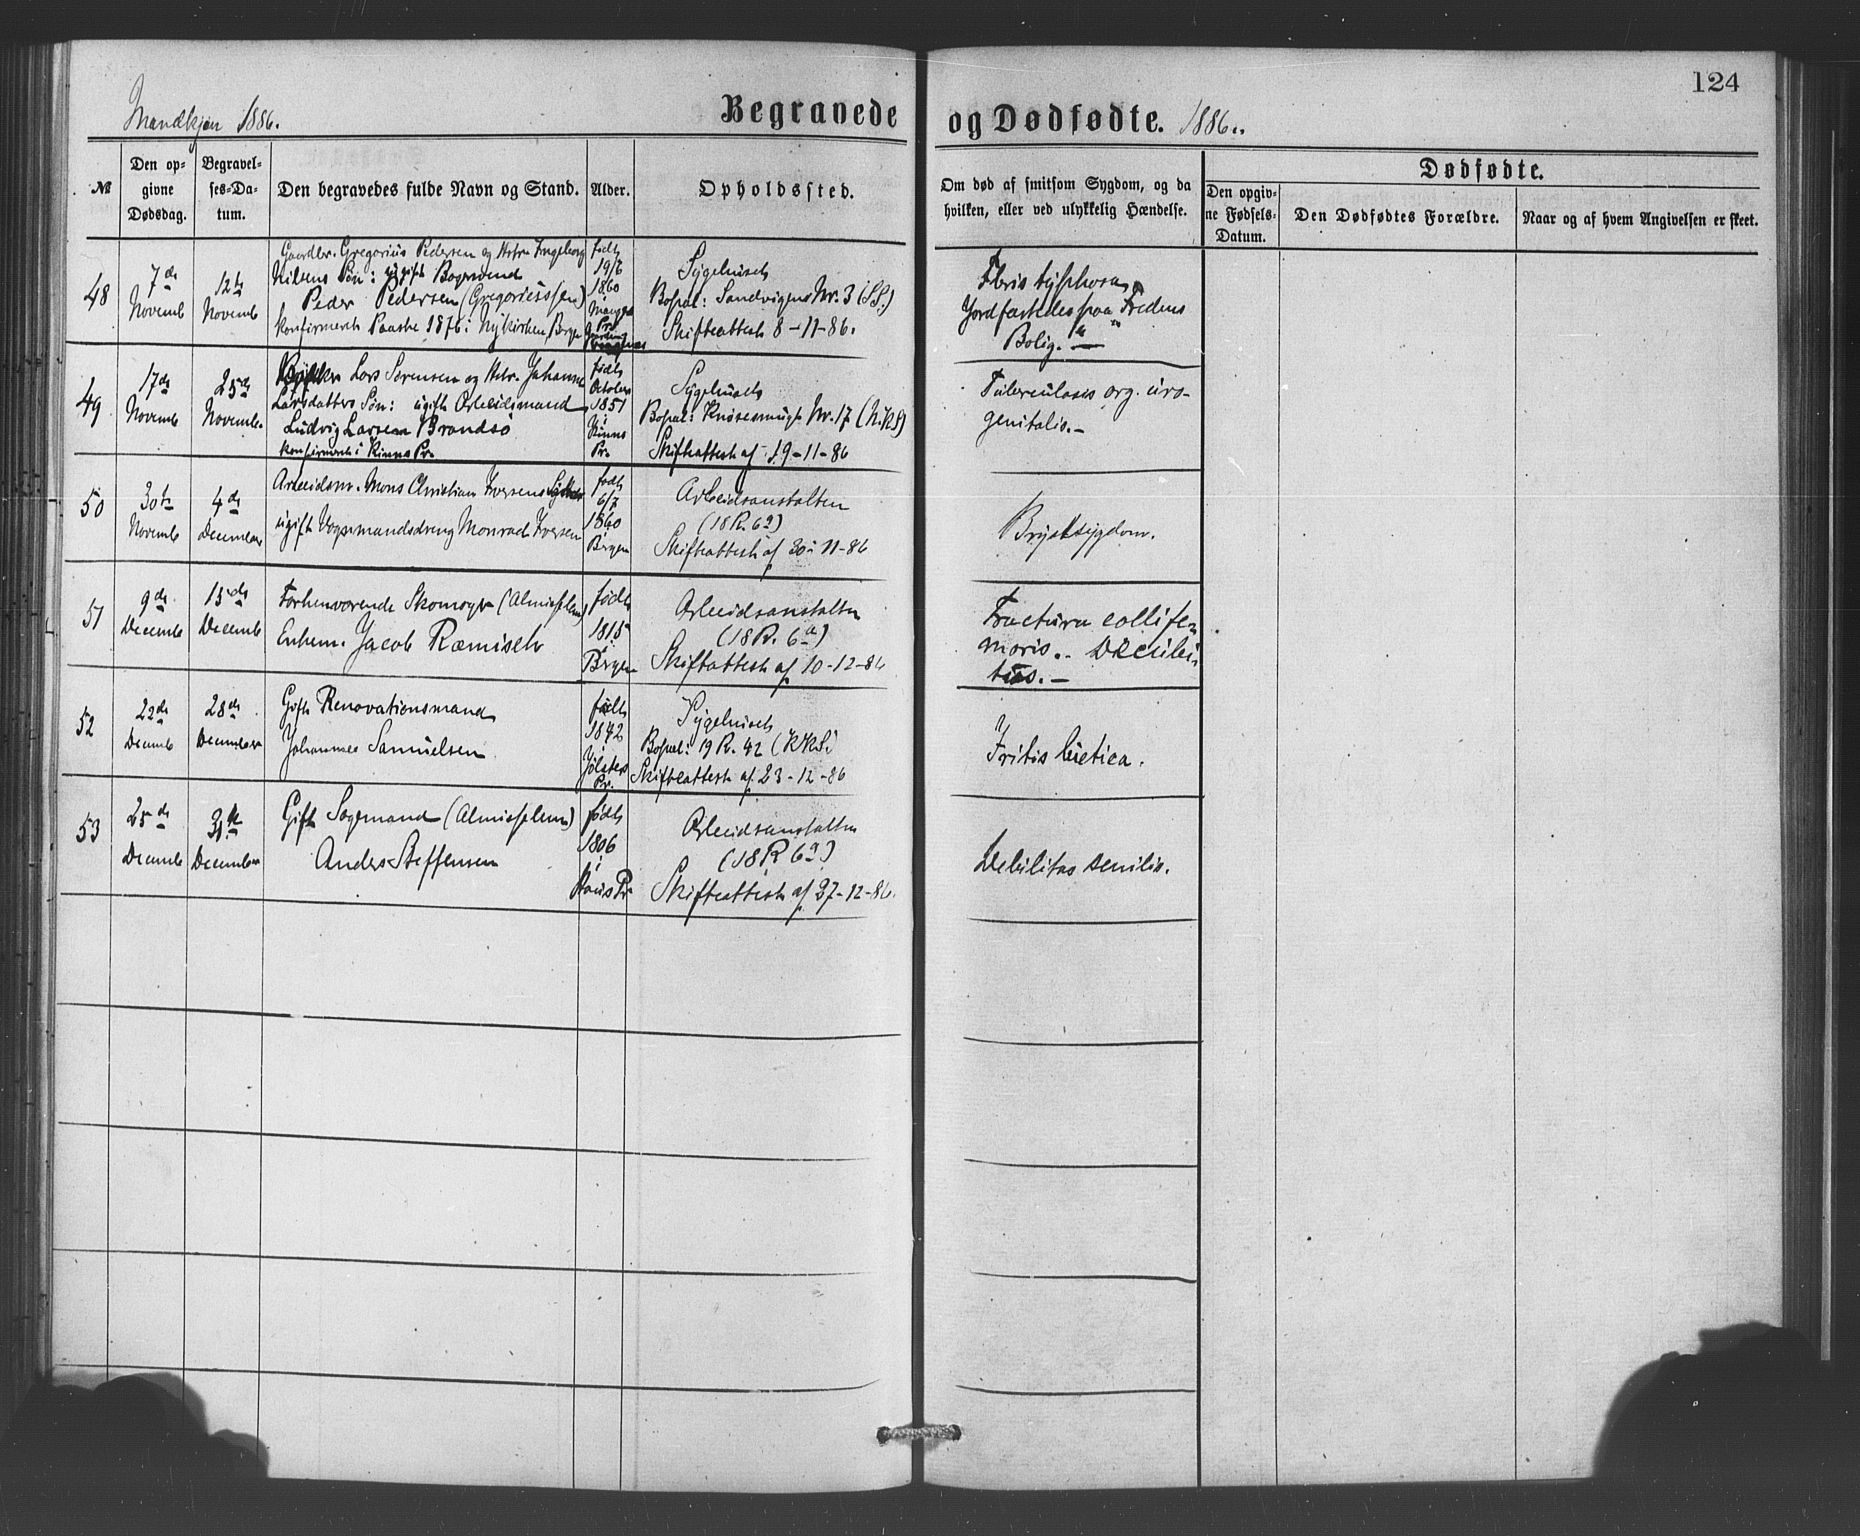 124
Mandkjøn 1886.
Begravede og Dødfødte. 1886.
№
Den op-
givne
Dødsdag.
Begravel-
ses-Da-
tum.
Den begravedes fulde Navn og Stand.
Alder.
Opholdssted.
Om død af smitsom Sygdom, og da
hvilken, eller ved ulykkelig Hændelse.
Dødfødte.
Den opgiv-
ne Fødsels-
Datum.
Den Dødfødtes Forældre.
Naar og af hvem Angivelsen er skeet.
48
7de
Novemb
12te
Novemb
Gaardbr. Gregorius Pedersen og Hstr. Ingeborg
Nilsens Søn: ugift Bogsvend
Peder Pedersen (Gregoriussen)
konfirmert Paaske 1876 i Nykirken, Bergen
født
19/6
1860
i
Manger
Pr.
Sygehuset
Bopæl: Sandvigens Nr. 3 (SS.)
Skifteattest 8-11-86.
Febris typhosa,
Jordfæstedes paa Fredens
Bolig.
49
17de
Novemb
25de
Novemb.
Lars Sørensen og Hstr. Johanne
Larsdatters Søn: ugift Arbeidsmand
Ludvig Larsen Brandsø
konfirmert i Kinns Pr.
født
October
1851
i
Kinns
Pr.
Sygehuset
Bopæl: Knøsesmugt Nr. 17 (N.K.S)
Skifteattest af 19-11-86
Tuberculosis org. uro-
genitalis.-
50
30te
Novemb
4de
December
Arbeidsm. Mons Christian Iversens Søn
ugift Vognmandsdreng Monrad Iversen
født
6/7
1860
i
Bergen
Arbeidsanstalten
(18 R. 6a)
Skifteattest af 30-11-86
Brystsygdom.
51
9de
Decemb
15de
Decemb
Forhenværende Skomager (Almisselem)
Enkem. Jacob Ræmisch
født
1815
i
Bergen
Arbeidsanstalten
(18 R. 6a)
Skifteattest af 10-12-86
Fractura colli fe-
moris.. Decubi-
tus.-
52
22de
Decemb
28de
December
Gift Renovationsmand
Johannes Samuelsen
født
1842
i
Jølsters
Pr.
Sygehuset
Bopæl: 19 R. 42 (KKS)
Skifteattest af 23-12-86
Iritis luetica.
53
25de
Decemb
31te
December
Gift Sagemand (Almisselem)
Anders Steffensen
født
1806
i
Haus Pr
Arbeidsanstalten
(18 R 6a)
Skifteattest af 27-12-86.
Debilitas senilis.